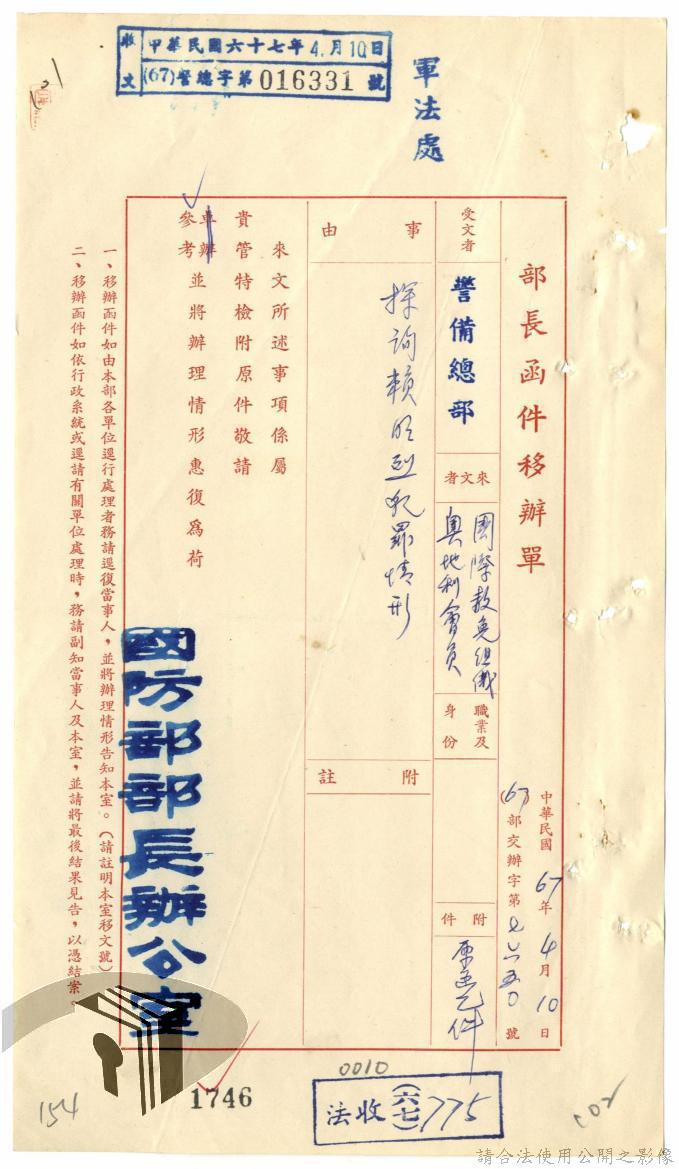 收文
中華民國六十七年4.月10日
(67)督總字第016331號
軍法處
部長函件移辦單
中華民國67年4月10日
(67)部交辦字第七六五0號
受文者
警備總部
來文者
國際赦免組織
奧地利會員
職業及
身份
附件
原函乙件
事由
探詢賴明烈犯罪情形
附註
來文所述事項係屬
貴管特檢附原件敬請
卓辦
參考
並將辦理情形惠復為荷
國防部部長辦公室
一、移辦函件如由本部各單位逕行處理者務請逕復當事人，並將辦理情形告知本室。（請註明本室移文號）
二、移辦函件如依行政系統或還請有關單位處理時，務請副知當事人及本室，並請將最後結果見告，以憑結案。
0010
1746
法收(六七)775
154
002
請合法使用公開之影像